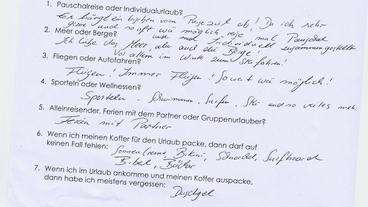 1. Pauschalreise oder Individualurlaub?
Es hängt ein bisschen vom Reiseziel ab! Da ich sehr
gerne und so oft wie möglich reise mal Pauschal
2. Meer oder Berge? und mal Individuell zusammengestellt
Ich liebe das Meer aber auch die Berge!
Vor allem im Winter zum Skifahren!
3. Fliegen oder Autofahren?
Fliegen! Immer Fliegen! So weit wie möglich!
4. Sporteln oder Wellnessen?
Sporteln - Schwimmen, Surfen, Ski und so vieles mehr
5. Alleinreisender, Ferien mit dem Partner oder Gruppenurlauber?
Ferien mit Partner
6. Wenn ich meinen Koffer für den Urlaub packe, dann darf auf
keinen Fall fehlen: Sonnencreme, Bikini, Surfboard
Bibel, Bücher
7. Wenn ich im Urlaub ankomme und meinen Koffer auspacke,
dann habe ich meistens vergessen:
Duschgel